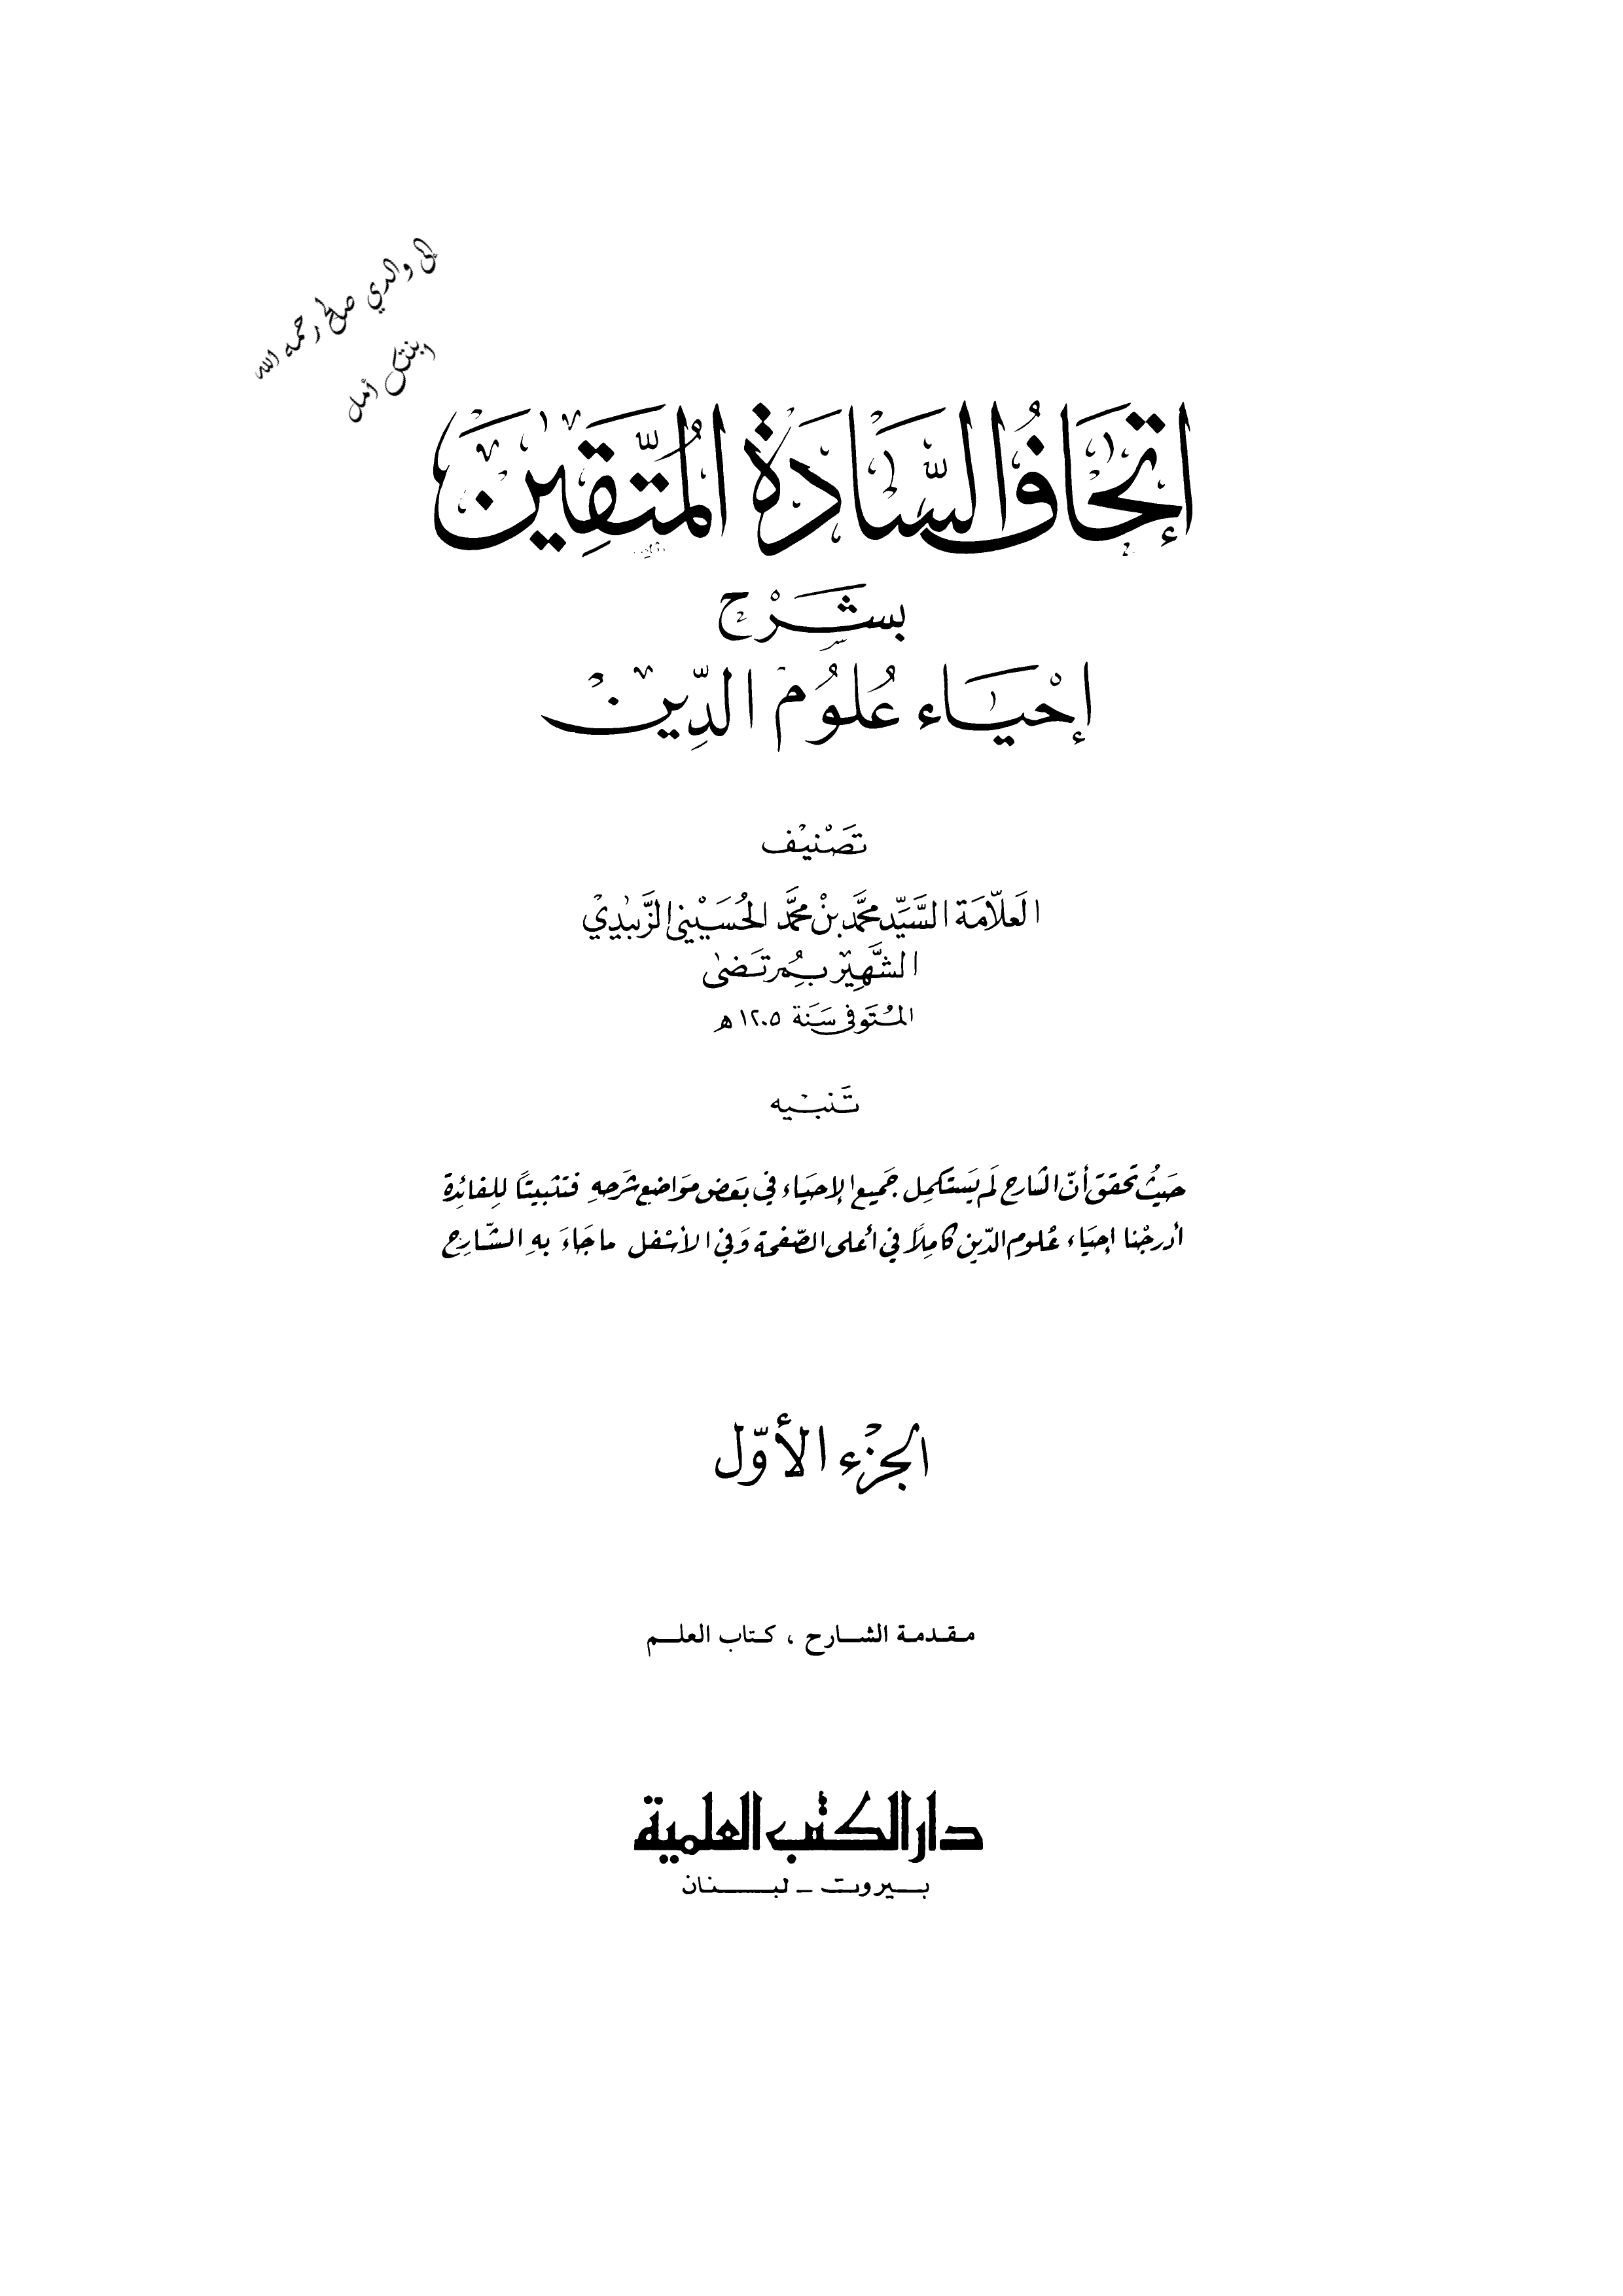 إلى والدي صالح رحمه الله
ابنتك أمل
إتحاف السادة المتقين
بشرح
إحياء علوم الدين
تصنيف
العلامة السيد محمد بن محمد الحسيني الزبيدي
الشهير بمرتضى
المتوفى سنة ١٢٠٥ هـ
تنبيه
حيث تحقق أن الشارح لم يستكمل جميع الإحياء في بعض مواضع شرحه فتثبيتا للفائدة
أدرجنا إحياء علوم الدين كاملا في أعلى الصفحة وفي الأسفل ما جاء به الشارح
الجزء الأول
مقدمة الشارح ، كتاب العلم
دار الكتب العلمية
بيروت - لبنان